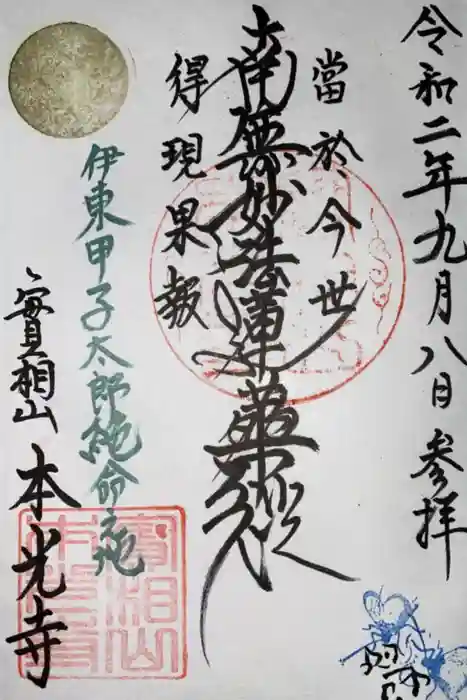 令和二年九月八日 参拝
當於今世
南無妙法蓮華経
得現果報
伊東甲子太郎絶命之地
實相山 本光寺
實相山
本光寺